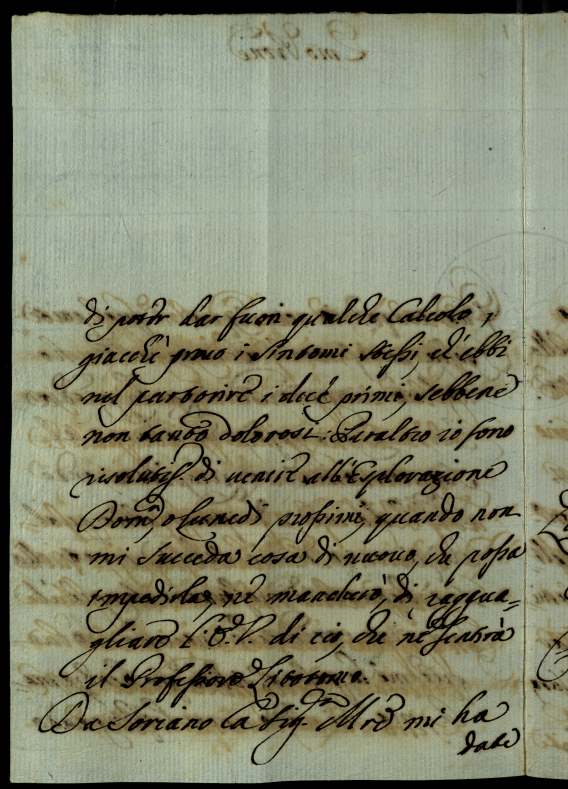 di poter dar fuori qualche Calcolo,
giacchè provo i sintomi stessi, ch'ebbi
nel partorire i dieci primi, sebbene
non tanto dolorosi. Peraltro io sono
risolutiss.º di venire all'Esplorazione
Dom.ca, o Lunedì prossimi, quando non
mi succeda cosa di nuovo, che possa
impedirla, nè mancherò, di raggua=
gliare l'E.V. di ciò, che nè sentirà
il Professore Litotomo.
Da Soriano la Sig.ra Mrè mi ha
date